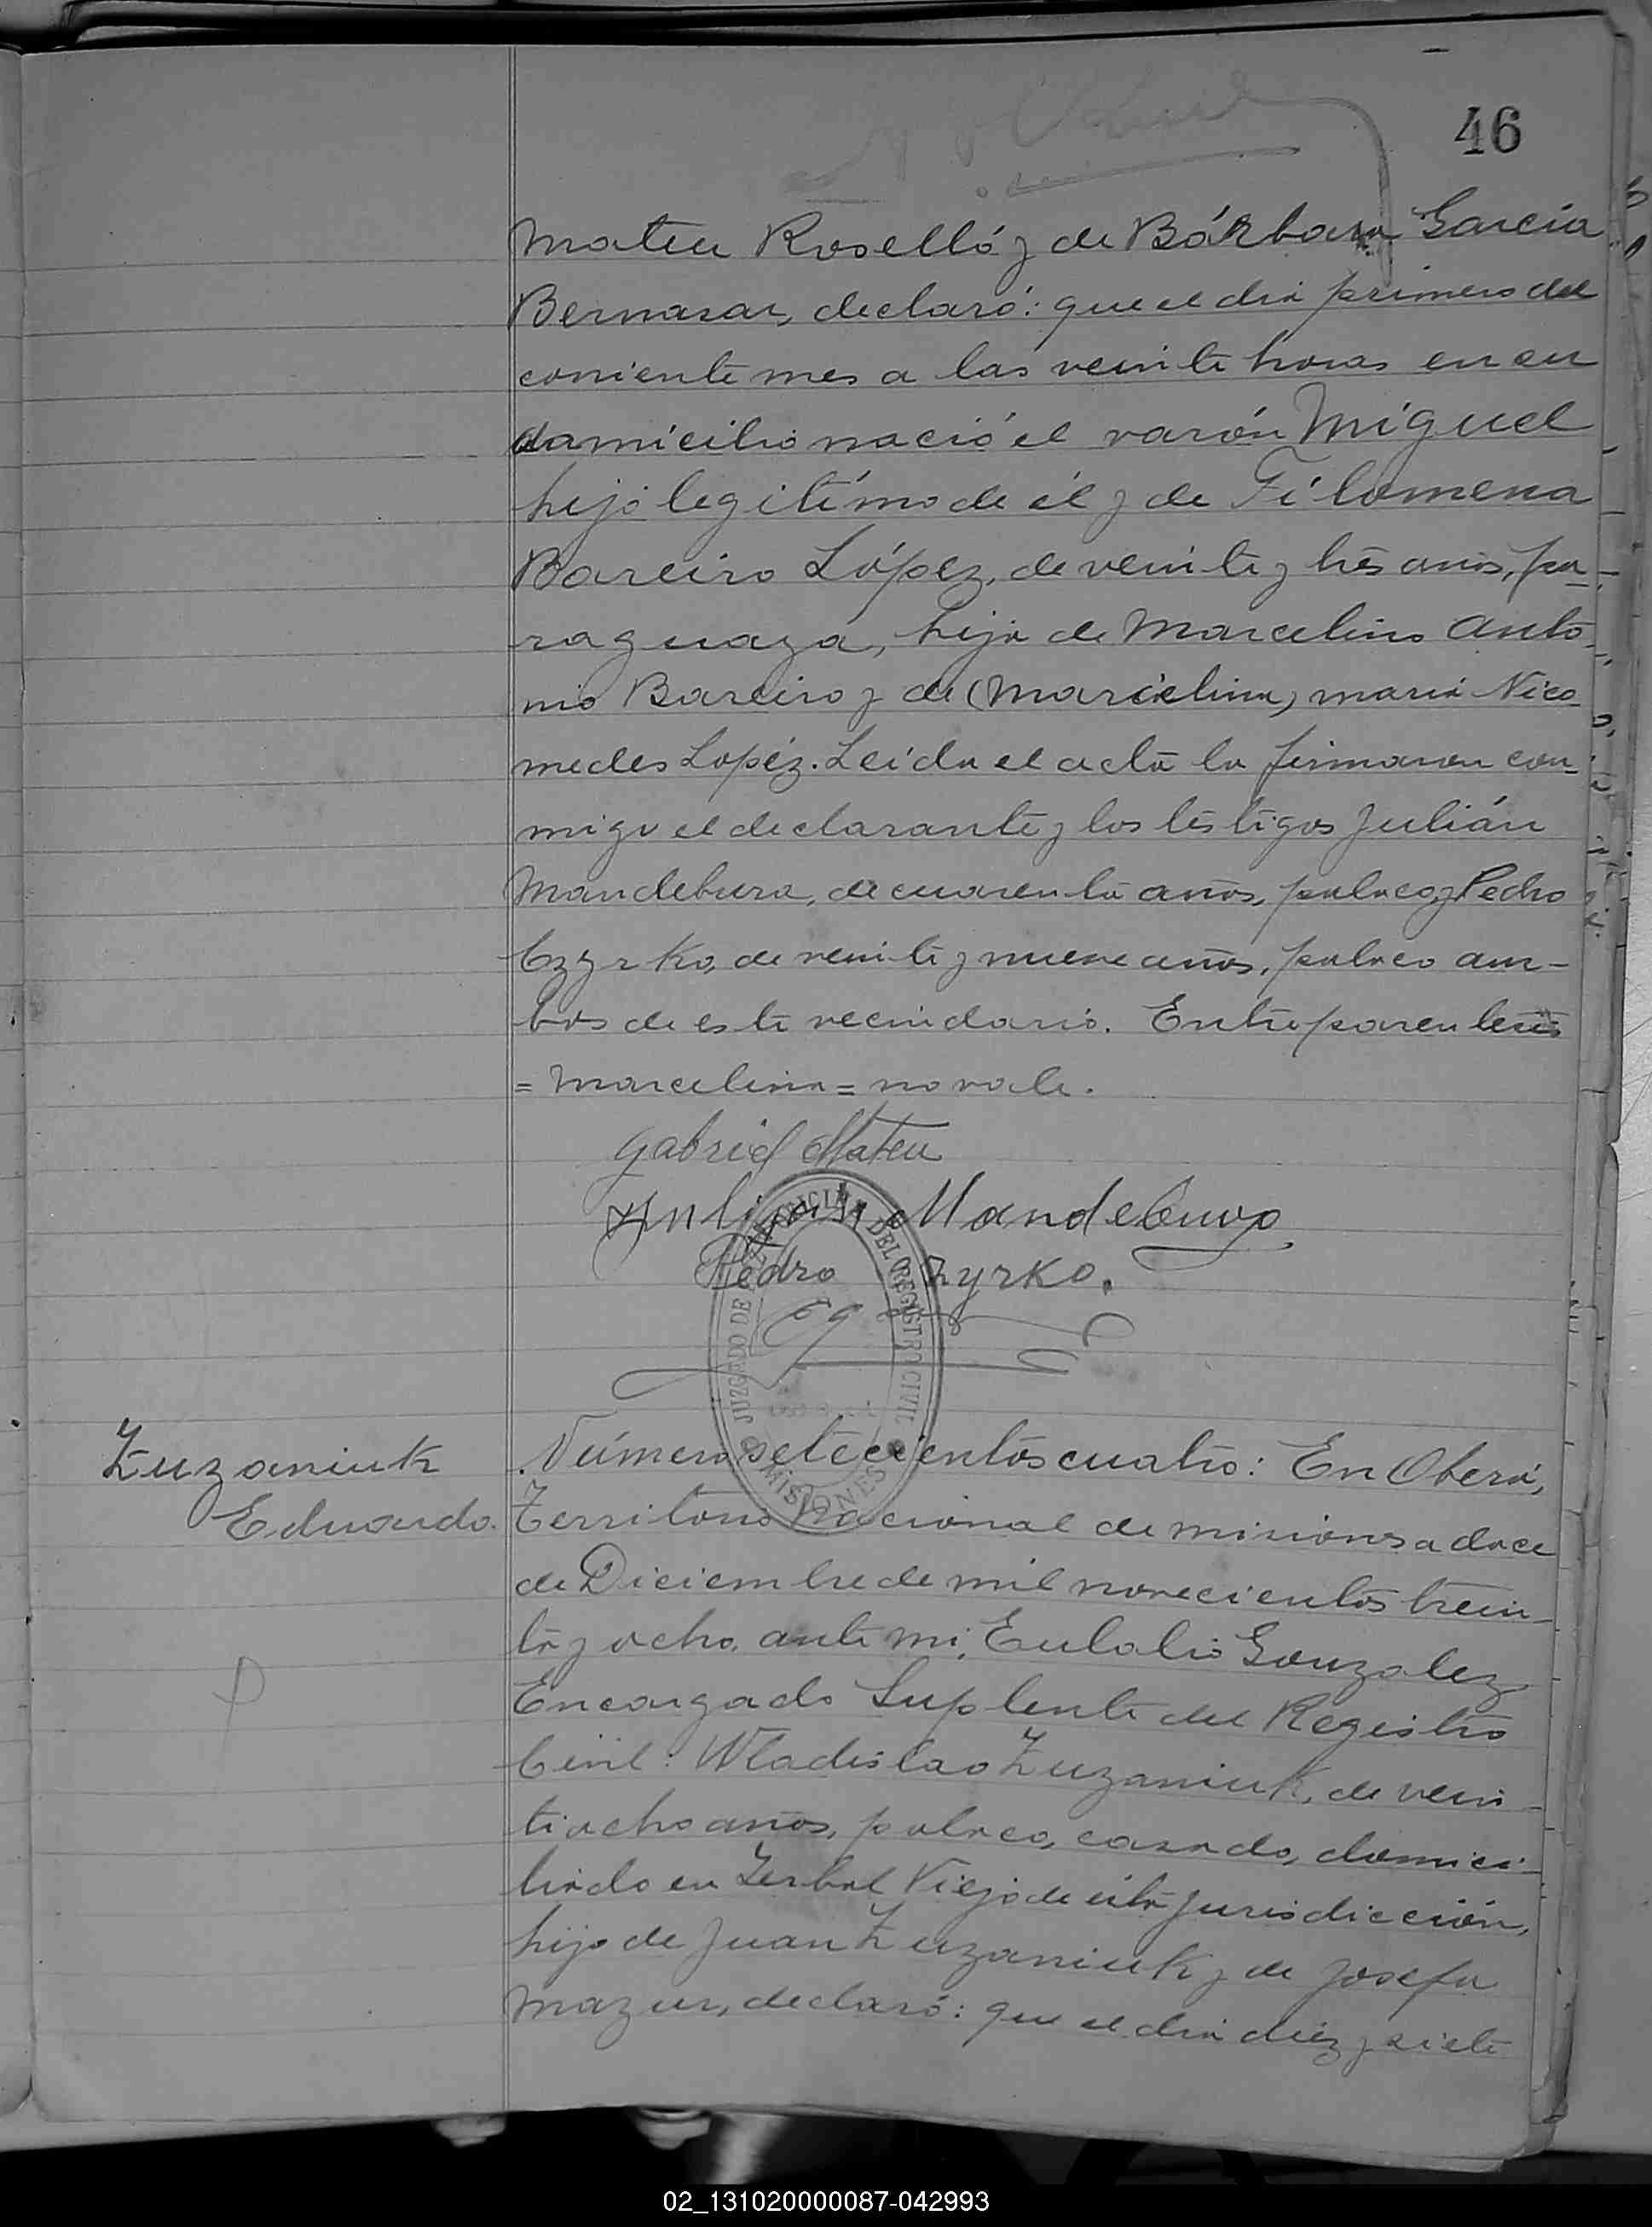 46
Mateu Roselló y de Bárbara García
Bernasar, declaró: que el día primero del
corriente mes a las veinte horas en su
domicilio nació el varón Miguel
hijo legítimo de él y de Filomena
Bareiro López, de veinte y tres años, pa-
raguaya, hija de Marcelino Anto-
nio Bareiro y de (Marcelina) María Nico-
medes Lopéz. Leída el acta la firmaron con-
migo el declarante y los testigos Julián
Mandebura, de cuarenta años, polaco y Pedro
Czyrko, de veinte y nueve años, polaco am-
bos de este vecindario. Entre parentesis
= Marcelina = no vale.
Gabriel Mateu
Julian Mandebura
Pedro Czyrko.
JUZGADO DE PAZ OFICINA DEL REGISTRO CIVIL
MISIONES
Zuzaniuk
Eduardo.
Número setecientos cuatro: En Oberá,
Territorio Nacional de Misiones a doce
de Diciembre de mil novecientos trein-
ta y ocho, ante mi, Eulalio Gonzalez
Encargado Suplente del Registro
Civil: Wladislao Zuzaniuk, de vein-
tiocho años, polaco, casado, domici-
liado en Yerbal Viejo de esta jurisdicción,
hijo de Juan Zuzaniuk y de Josefa
Mazur, declaró: que el día diez y siete
02_131020000087-042993